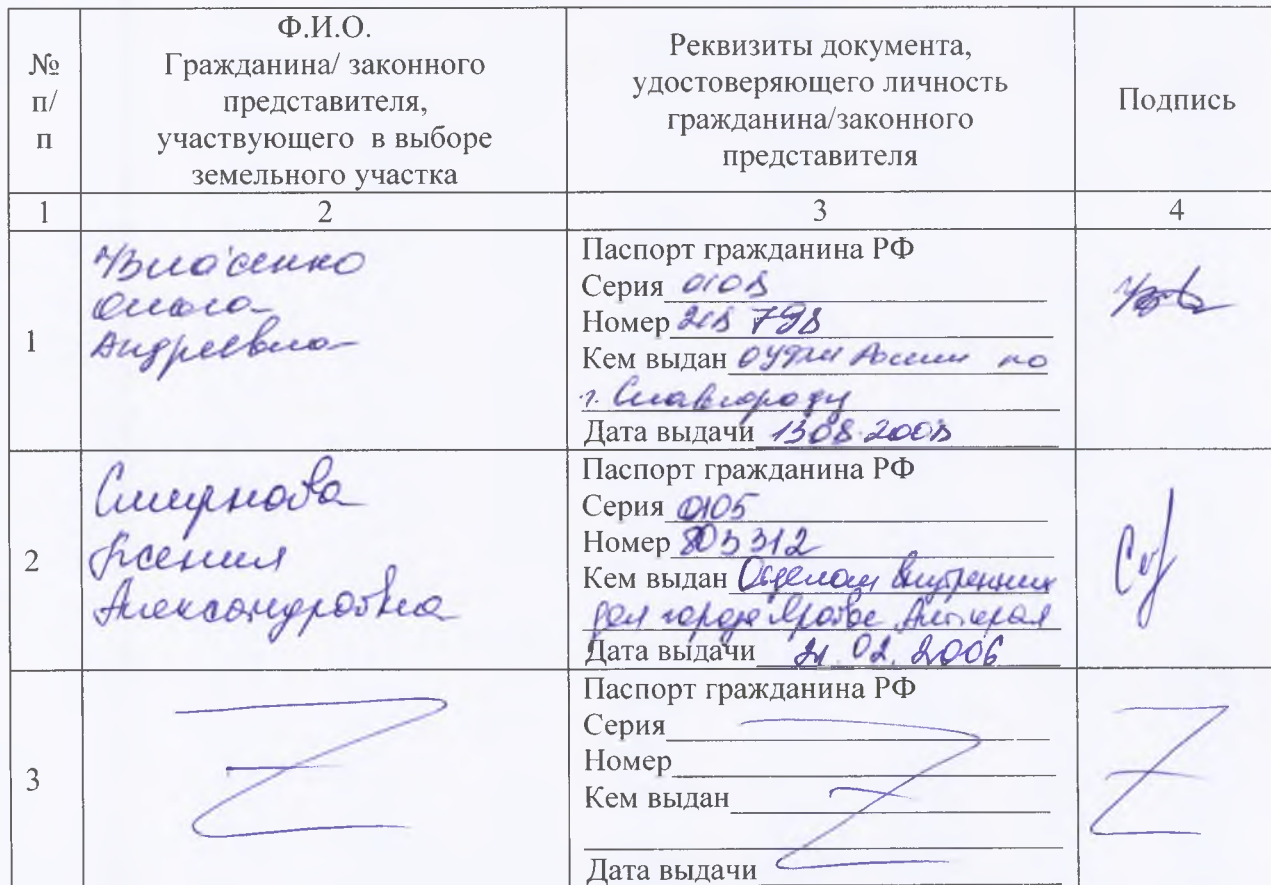 № п/п
Ф.И.О.
Гражданина/ законного
представителя,
участвующего в выборе
земельного участка
Реквизиты документа,
удостоверяющего личность
гражданина/законного
представителя
Подпись
1
2
3
4
1
Андреевна
Паспорт гражданина РФ
Серия 0108
Номер 218 798
Кем выдан ОУФМС России по
г. Славгороду
Дата выдачи 13.08.2008
2
Смирнова
Ксения
Александровна
Паспорт гражданина РФ
Серия 0105
Номер 803312
Кем выдан Отделом внутренних
дел города
Дата выдачи 21.02.2006
3
Паспорт гражданина РФ
Серия
Номер
Кем выдан
Дата выдачи